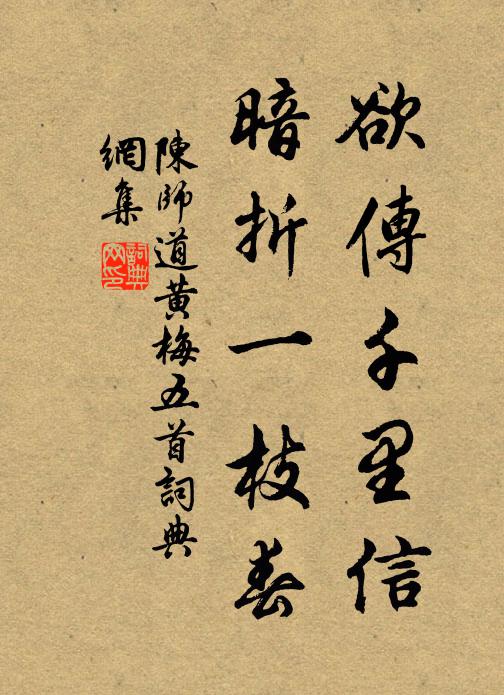 欲傳千里信
暗折一枝春
陳師道黃梅五首詞典
網集
詞典
网印